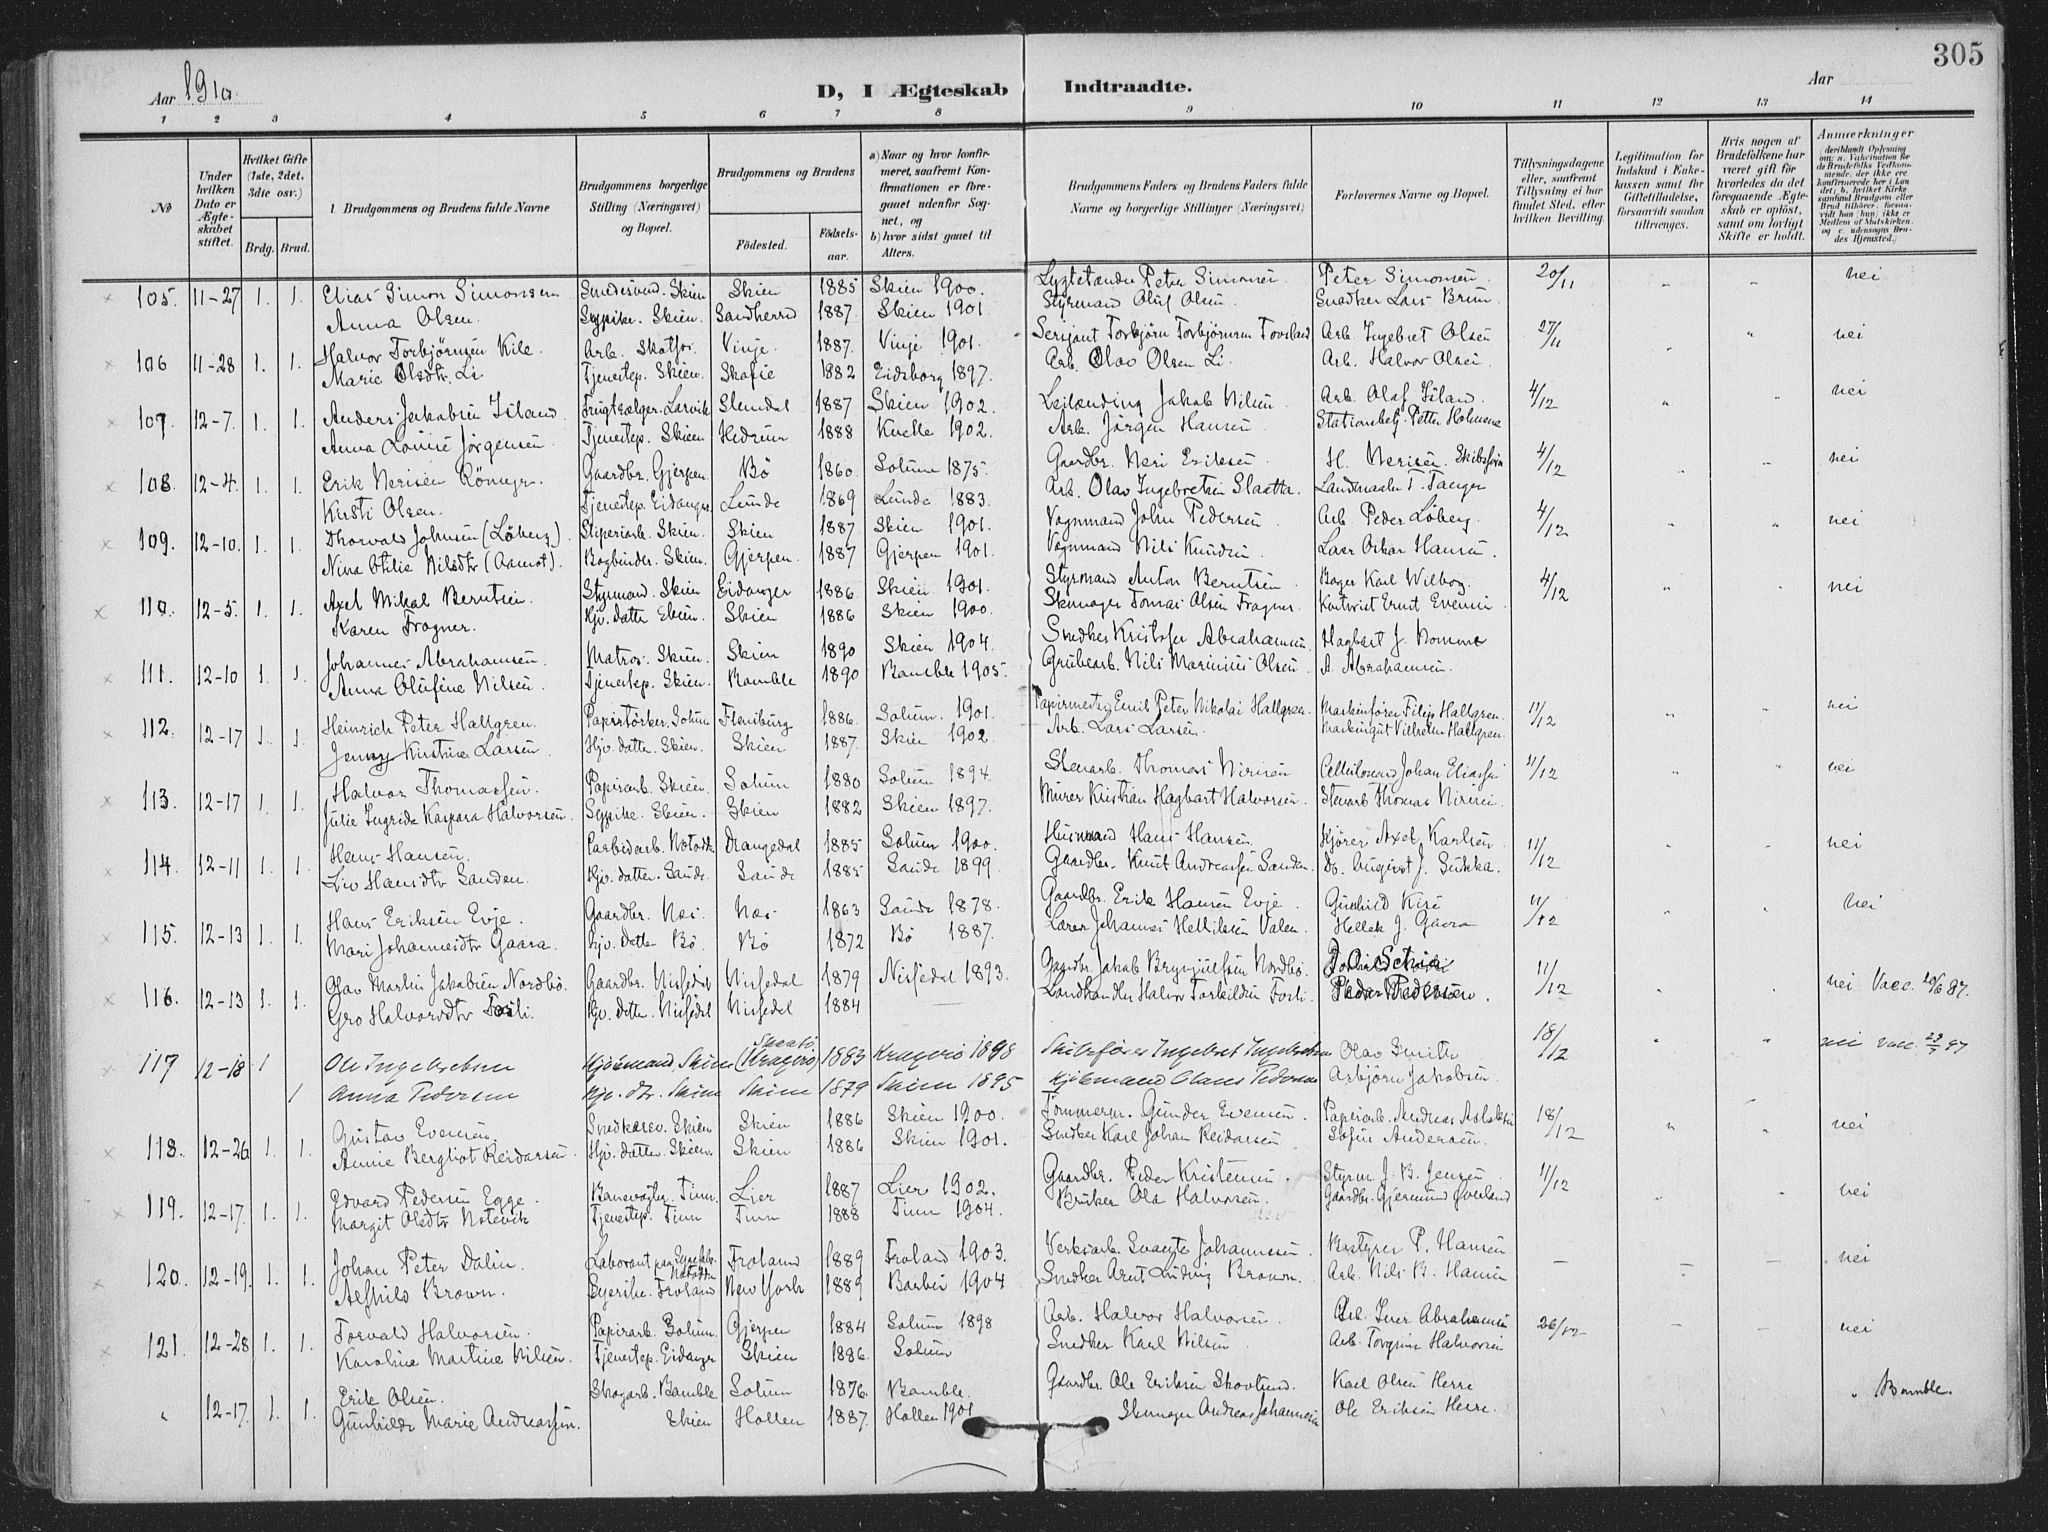 305
Aar 1910.
D, I Ægteskab Indtraadte.
Aar
1 2 3 4 5 6 7 8 9 10 11 12 13 14
No
Under hvilken Dato er Ægteskabet stiftet.
Hvilket Gifte (1ste, 2det, 3die osv.)
Brdg. Brud.
Brudgommens og Brudens fulde Navne
Brudgommens borgerlige Stilling (Næringsvei) og Bopæl.
Brudgommens og Brudens
Födested. Födselsaar.
a) Naar og hvor konfirmeret, saafremt Konfirmationen er foregaaet udenfor Sognet, og
b) hvor sidst gaaet til Alters.
Brudgommens Faders og Brudens Faders fulde Navne og borgerlige Stillinger (Næringsvei)
Forlovernes Navne og Bopæl.
Tillysningsdagene eller, saafremt Tillysning ei har fundet Sted, efter hvilken Bevilling.
Legitimation for Indskud i Enkekassen samt for Giftetilladelse, forsaavidt saadan tiltrænges.
Hvis nogen af Brudefolkene har været gift för hvorledes da det foregaaende Ægteskab er oplöst, samt om lovligt Skifte er holdt.
Anmærkninger
105. 11-27 1. 1. Elias Simon Simonsen Smedesvend. Skien Skien 1885 Skien 1900. Lygtetænder Peter Simonsen Peter Simonsen 20/11 " " nei
Anna Olsen. Sypike. Skien. Sandherred 1887. Skien 1901 Styrmand Oluf Olsen Snedker Lars Brun
106 11-28 1. 1. Halvor Torbjørnsen Kile. Arb. Skotfos Vinje 1887. Vinje 1901. Serjant Torbjörn Torbjörnsen Toveland Arb. Ingebret Olsen 27/11 " " nei
Marie Olsdtr. Li Tjenestep. Skien. Skafse 1882 Eidsborg 1897. Arb. Olav Olsen Li Arb. Halvor Olsen
107 12-7. 1. 1. Anders Jakobsen Island Frugtsælger. Larvik Slemdal 1887 Skien 1902. Leilænding Jakob Nilsen Arb. Olaf Island 4/12 " " nei
Anna Lovise Jörgensen Tjenestep. Skien Hedrum 1888 1902. Arb. Jörgen Hansen Stationsbetj. Petter Holmene
108 12-4. 1. 1. Erik Nerisen Rönnyr. Gaardbr. Gjerpen Bö 1860. Solum 1875. Gaardbr. Neri Eriksen H. Nerisen. 4/12 " " nei
Kirsti Olsen. Tjenestep. Eidanger Lunde 1869 Lunde 1883. Arb. Olav Ingebretsen Slaatta. Landmaaler T. Tanger
109. 12-10. 1. 1. Thorvald Johnsen (Løberg) Sliperiarb. Skien. Skien 1887 Skien 1901. Vognmand John Pedersen Arb. Peder Løberg 4/12 " " nei
Nina Otilie Nilsdtr (Aamot). Bogbinder. Skien. Gjerpen. 1887 Gjerpen 1901. Vognmand Nils Knudsen Laer Oskar Hansen.
110. 12-5. 1. 1. Axel Mikal Berntsen. Styrmand. Skien Eidanger 1886. Skien 1901. Styrmand Anton Berntsen Bager Karl Wilbog 4/12 " " nei
Karen Fragner. Hjv. datter Skien. Skien 1886 Skien 1900. Skomager Tomas Olsen Fragner. Kontorist Ernst Evensen
111. 12-10 1. 1. Johannes Abrahamsen. Matros. Skien. Skien 1890 Skien 1904. Snedker Kristofer Abrahamsen Hagbart J. Nomme
Anna Olufine Nilsen. Tjenestep. Skien. Bamble 1890 Bamble 1905. Grubearb. Nils Marinius Olsen A. Abrahamsen.
112. 12-17 1. 1. Heinrich Peter Hallgren. Papirtörker. Solum Flensburg 1886. Solum. 1901. Papirmester Emil Peter Nikolai Hallgren. Maskinfører Filip Hallgren. 11/12 " " nei
Jenny Kirstine Larsen. Hjv. datter. Skien. Skien 1887. Skien 1902. Arb. Lars Larsen. Maskingut Vilhelm Hallgren.
113. 12-17 1. 1. Halvor Thomassen. Papirarb. Skien. Solum 1880 Solum 1894. Stenarb. Thomas Nirisen Cellulosearb Johan Eliassen 11/12 " " nei
Julie Ingrida Kaspara Halvorsen. Sypike. Skien. Skien 1882 Skien 1897. Murer Kristian Hagbart Halvorsen. Stenarb Thomas Nirisen.
114. 12-11 1. 1. Hans Hansen. Carbidarb. Notodd. Drangedal 1885 Solum 1900. Husmand Hans Hansen. Kjører Axel Karlsen 11/12 " " nei
Liv Hansdtr Sanden. Hjv. datter. Saude. Saude 1885 Saude 1899. Gaardbr. Knut Andreassen Sanden Do. August J. Sukka.
115. 12-13 1. 1. Hans Eriksen Evje. Gaardbr. Næs. Næs 1863 Saude 1878. Gaardbr. Erik Hansen Evje Gunhild Kise 11/12 " " Nei
Mari Johannesdtr Gaara. Hjv. Datter Bö. Bö 1872 Bö 1887. Lærer Johannes Hellilsen Valen. Hellek J. Gaara
116. 12-13 1. 1. Olav Martin Jakobsen Nordbö. Gaardbr. Nissedal Nissedal 1879 Nissedal 1893. Gaardbr. Jakob Brynjulfsen Nordbö. 11/12 " " nei Vacc. 20/6 87.
Gro Halvorsdtr Fosli. Hjv. datter. Nissedal Nissedal 1884 — Landhandler Halvor Torkildsen Fosli. Peder Pedersen.
117 12-18 1 Ole Ingebretsen Kjörmand Skien Skaatö (Kragerö) 1883 Kragerö 1898 Skibsfører Ingebret Ingebretsen Olav Smith 18/12 " " nei vacc. 23/7 97
1 Anna Pedersen Hjv. dtr. Skien Skien 1879 Skien 1895 Kjörmand Claus Pedersen Asbjörn Jakobsen
118. 12-26 1. 1. Gustav Evensen Snedkersv. Skien Skien 1886 Skien 1900. Tømmerm. Gunder Evensen. Papirarb. Andreas Aslaksen 18/12 " " nei
Annie Bergliot Reidarsen Hjv. datter. Skien. Skien 1886 Skien 1901. Snedker Karl Johan Reidarsen Sofus Andersen.
119. 12-17. 1. 1. Edvard Pedersen Egge. Banevogter. Tinn. Lier 1887 Lier 1902. Gaardbr. Peder Kristensen. Styrm J. B. Jensen 11/12 " " nei
Margit Olsdtr Notevik Tjenestep. Tinn Tinn 1888 Tinn 1904. Bruker Ola Halvorsen. Gaardbr. Gjermund Øverland
120. 12-19. 1. 1. Johan Peter Dalin. Laborant Notodden Froland 1889 Froland 1903. Verksarb. Johannessen. Bestyrer P. Hansen — — — nei
Alfhild Brown. Syerske. Froland New York 1889 Barbu 1904 Snedker Arnt Ludvig Brown. Arb. Nils B. Hansen
121. 12-28 1. 1. Torvald Halvorsen. Papirarb. Solum. Gjerpen 1884 Solum 1898 Arb. Halvor Halvorsen. Arb. Iver Abrahamsen 26/12 — — nei
Karoline Martine Nilsen. Tjenestep. Eidanger Skien 1886. Solum Snedker Karl Nilsen Arb. Torgrim Halvorsen
" 12-17. 1. 1. Erik Olsen. Skogarb. Bamble Solum 1876. Bamble. Gaardbr. Ole Eriksen Skovlund. Karl Olsen Herre " Bamble.
Gunhilde Marie Andreassen. Skien Hollen 1887. Hollen 1901 Skomager Andreas Johannesen Ole Eriksen Herre.